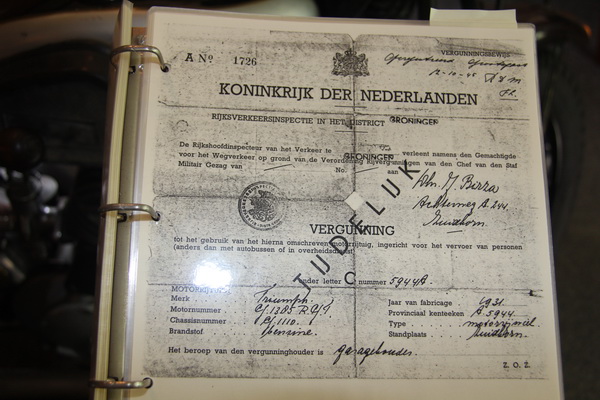 VERGUNNINGSBEWIJS
A No 1726
12-10-45
KONINKRIJK DER NEDERLANDEN
RIJKSVERKEERSINSPECTIE IN HET DISTRICT GRONINGEN
De Rijkshoofdinspecteur van het Verkeer te GRONINGEN verleent namens den Gemachtigde
voor het Wegverkeer op grond van de Verordening Rijvergunningen van den Chef van den Staf
Militair Gezag van No. aan
J. Birza
Achterweg A 244
Zuidhorn.
VERGUNNING
TIJDELIJK
tot het gebruik van het hierna omschreven motorrijtuig, ingericht voor het vervoer van personen
(anders dan met autobussen of in overheidsdienst)
onder letter C nummer 5944A.
MOTORRIJTUIG
Merk Triumph. Jaar van fabricage 1931
Motornummer Provinciaal kenteeken A.5944
Chassisnummer Type motorrijwiel
Brandstof benzine. Standplaats Zuidhorn.
Het beroep van den vergunninghouder is garagehouder.
Z.O.Z.